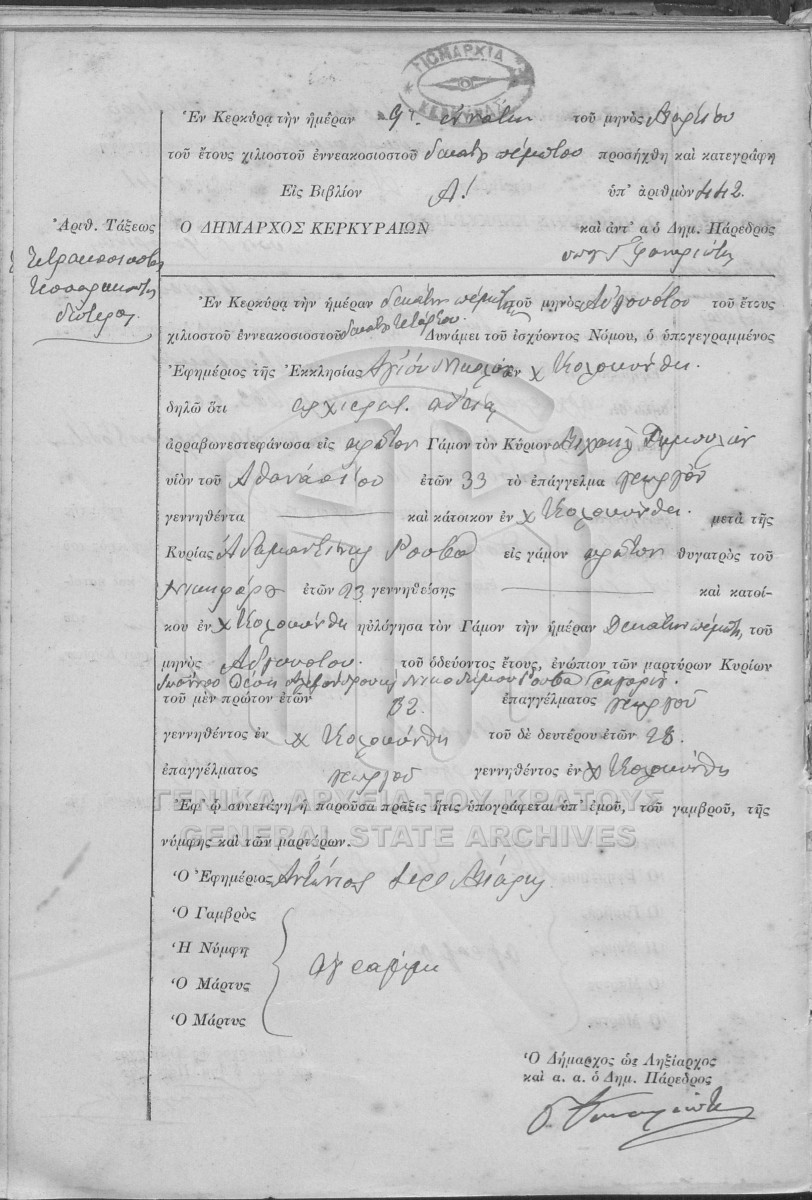 ΔΗΜΑΡΧΙΑ
ΚΕΡΚΥΡΑΣ
Ἐν Κερκύρᾳ τὴν ἡμέραν 9ην ἐννάτην τοῦ μηνὸς
τοῦ ἔτους χιλιοστοῦ ἐννεακοσιοστοῦ δεκάτου πέμπτου προσήχθη καὶ κατεγράφη
Εἰς Βιβλίον Α! ὑπ' ἀριθμὸν 442
Ἀριθ. Τάξεως
Ο ΔΗΜΑΡΧΟΣ ΚΕΡΚΥΡΑΙΩΝ καὶ ἀντ' α ὁ Δημ. Πάρεδρος
τετρακοσιοστὸς
τεσσαρακοστὸς
δεύτερος.
Ἐν Κερκύρᾳ τὴν ἡμέραν δεκάτην πέμπτην τοῦ μηνὸς Αὐγούστου τοῦ ἔτους
χιλιοστοῦ ἐννεακοσιοστοῦ δεκάτου τετάρτου. Δυνάμει τοῦ ἰσχύοντος Νόμου, ὁ ὑπογεγραμμένος
Ἐφημέριος τῆς Ἐκκλησίας Ἁγίου Νικολάου ἐν χ Κολοκύνθι.
δηλῶ ὅτι ἀρχιερατ. ἀδείᾳ
ἀρραβωνεστεφάνωσα εἰς πρῶτον Γάμον τὸν Κύριον Μιχαὴλ
υἱὸν τοῦ Ἀθανασίου ἐτῶν 33 τὸ ἐπάγγελμα γεωργὸν
γεννηθέντα καὶ κάτοικον ἐν χ Κολοκύνθι. μετὰ τῆς
Κυρίας Ἀδαμαντίνης Ρουβᾶ εἰς γάμον πρῶτον θυγατρὸς τοῦ
Νικηφόρου ἐτῶν 23 γεννηθείσης καὶ κατοί-
κου ἐν χ Κολοκύνθι ηὐλόγησα τὸν Γάμον τὴν ἡμέραν Δεκάτην πέμπτην τοῦ
μηνὸς Αὐγούστου. τοῦ ὁδεύοντος ἔτους, ἐνώπιον τῶν μαρτύρων Κυρίων
Νικοδήμου Ρουβᾶ
τοῦ μὲν πρώτου ἐτῶν 32. ἐπαγγέλματος γεωργοῦ
γεννηθέντος ἐν χ Κολοκύνθι τοῦ δὲ δευτέρου ἐτῶν 28.
ἐπαγγέλματος γεωργοῦ γεννηθέντος ἐν χ Κολοκύνθι
ΓΕΝΙΚΑ ΑΡΧΕΙΑ ΤΟΥ ΚΡΑΤΟΥΣ
Ἐφ' ᾧ συνετάγη ἡ παροῦσα πρᾶξις ἥτις ὑπογράφεται ὑπ' ἐμοῦ, τοῦ γαμβροῦ, τῆς
GENERAL STATE ARCHIVES
νύμφης καὶ τῶν μαρτύρων.
Ὁ Ἐφημέριος Ἀντώνιος ἱερ
Ὁ Γαμβρὸς
Ἡ Νύμφη
ἀγράμματοι
Ὁ Μάρτυς
Ὁ Μάρτυς
Ὁ Δήμαρχος ὡς Ληξίαρχος
καὶ α. α. ὁ Δημ. Πάρεδρος